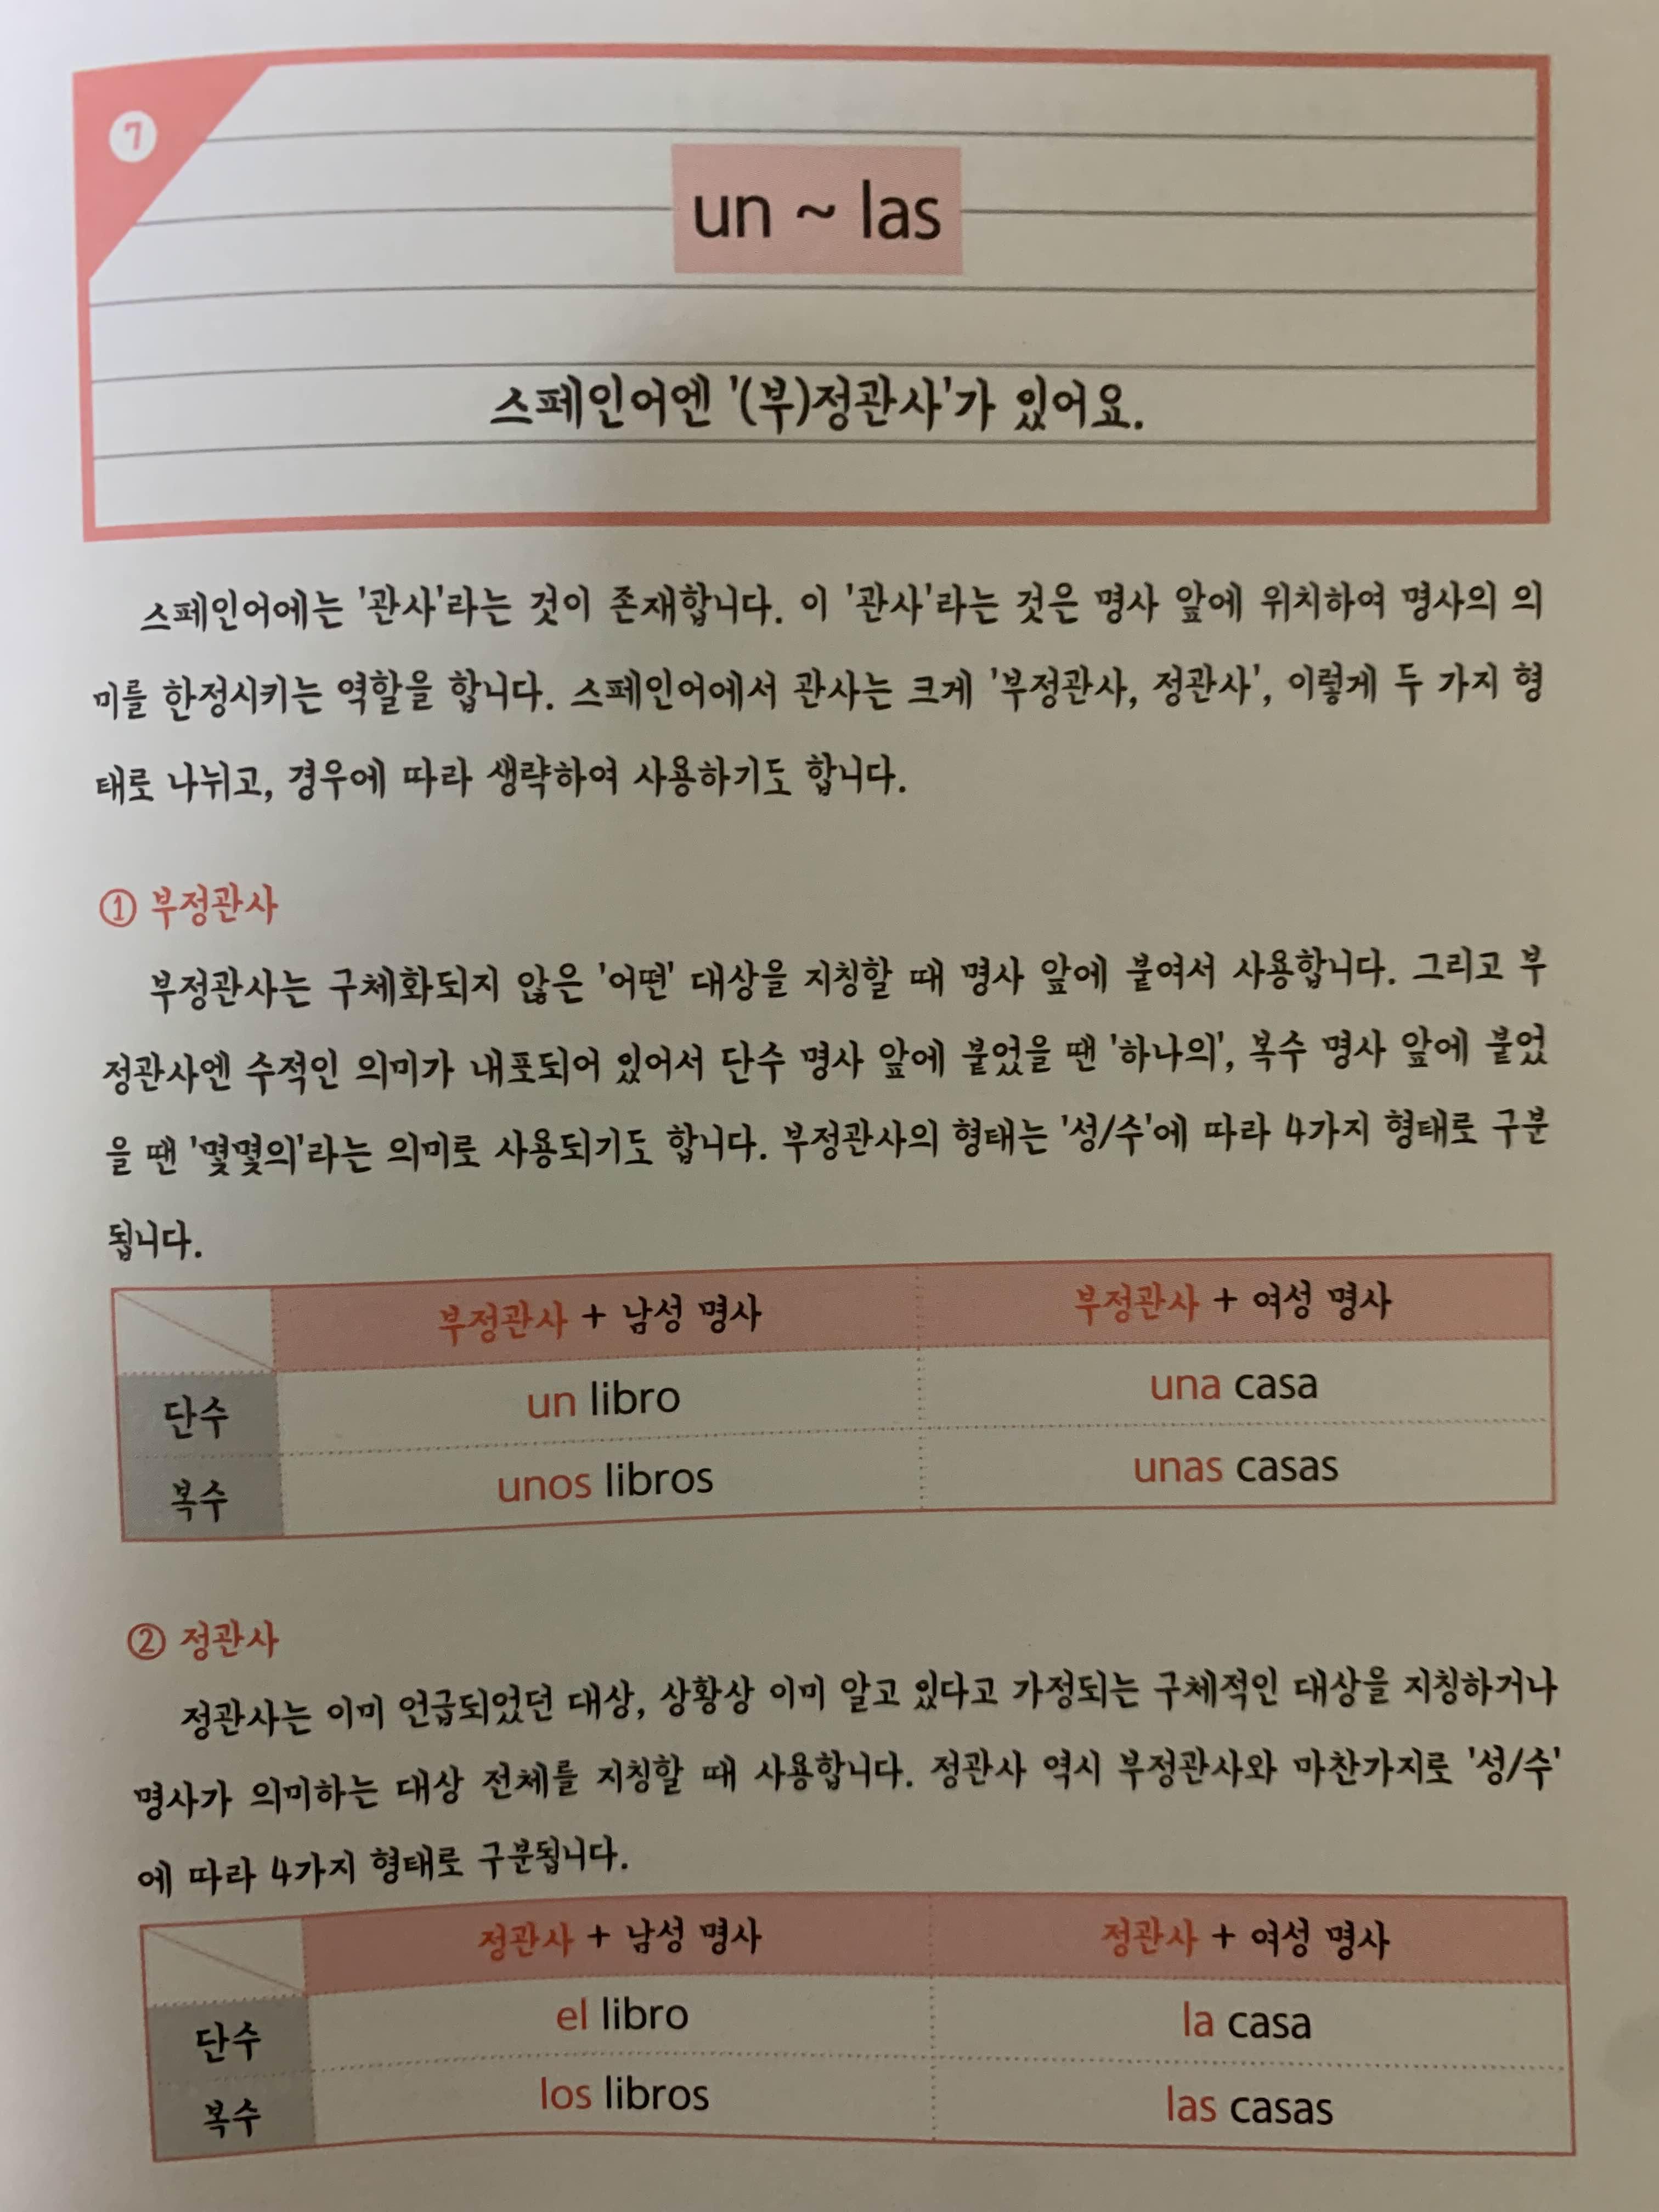 7
un ~ las
스페인어엔 '(부)정관사'가 있어요.
스페인어에는 '관사'라는 것이 존재합니다. 이 '관사'라는 것은 명사 앞에 위치하여 명사의 의
미를 한정시키는 역할을 합니다. 스페인어에서 관사는 크게 '부정관사, 정관사', 이렇게 두 가지 형
태로 나뉘고, 경우에 따라 생략하여 사용하기도 합니다.
① 부정관사
부정관사는 구체화되지 않은 '어떤' 대상을 지칭할 때 명사 앞에 붙여서 사용합니다. 그리고 부
정관사엔 수적인 의미가 내포되어 있어서 단수 명사 앞에 붙었을 땐 '하나의', 복수 명사 앞에 붙었
을 땐 '몇몇의'라는 의미로 사용되기도 합니다. 부정관사의 형태는 '성/수'에 따라 4가지 형태로 구분
됩니다.
부정관사 + 남성 명사 부정관사 + 여성 명사
단수 un libro una casa
복수 unos libros unas casas
② 정관사
정관사는 이미 언급되었던 대상, 상황상 이미 알고 있다고 가정되는 구체적인 대상을 지칭하거나
명사가 의미하는 대상 전체를 지칭할 때 사용합니다. 정관사 역시 부정관사와 마찬가지로 '성/수'
에 따라 4가지 형태로 구분됩니다.
정관사 + 남성 명사 정관사 + 여성 명사
단수 el libro la casa
복수 los libros las casas